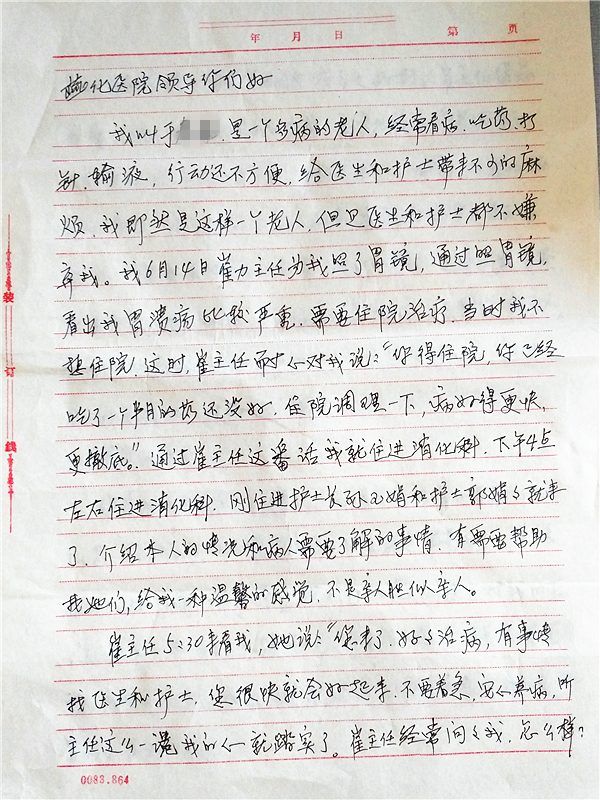 年 月 日 第 页
盐化医院领导你们好
我叫于 是一个多病的老人,经常看病、吃药、打
针、输液,行动还不方便,给医生和护士带来不少的麻
烦,我即然是这样一个老人,但是医生和护士都不嫌
弃我。我6月14日崔力主任为我照了胃镜,通过照胃镜,
看出我胃溃疡比较严重,需要住院治疗,当时我不
想住院,这时,崔主任耐心对我说:“你得住院,你已经
吃了一个半月的药还没好,住院调理一下,病好得更快,
更撤底。”通过崔主任这番话我就住进消化科,下午4点
左右住进消化科,刚住进护士长孙玉娟和护士郭娟々就来
了,介绍本人的情况和病人需要了解的事情,有需要帮助
找她们,给我一种温馨的感觉,不是亲人胜似亲人。
崔主任5:30来看我,她说:“您来了,好々治病,有事情
找医生和护士,您很快就会好起来,不要着急,安心养病,听
主任这么一说我的心就踏实了。崔主任经常问々我,怎么样?
装
订
线
0083.864